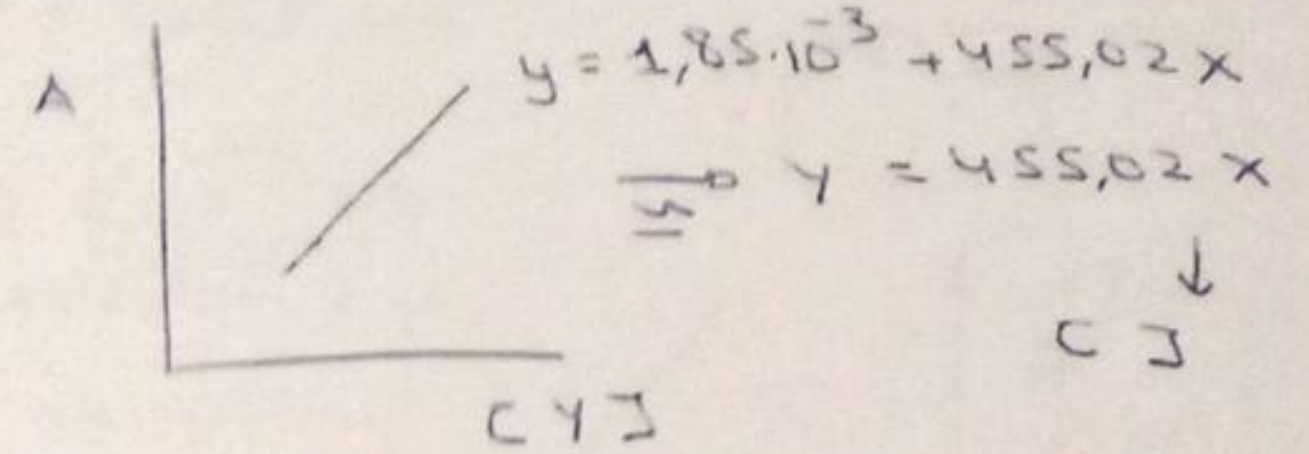 A
y = 1,85·10⁻³ + 455,02 x
y = 455,02 x
[ ]
[Y]